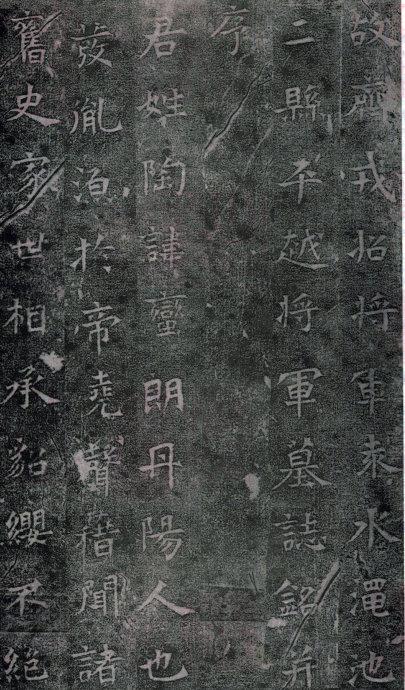 故齊戎招將軍來水澠池
二縣平越將軍墓誌銘并
序
君姓陶諱蠻朗丹陽人也
發胤㳂於帝堯聲楷聞諸
舊史家世相承貂纓不絕